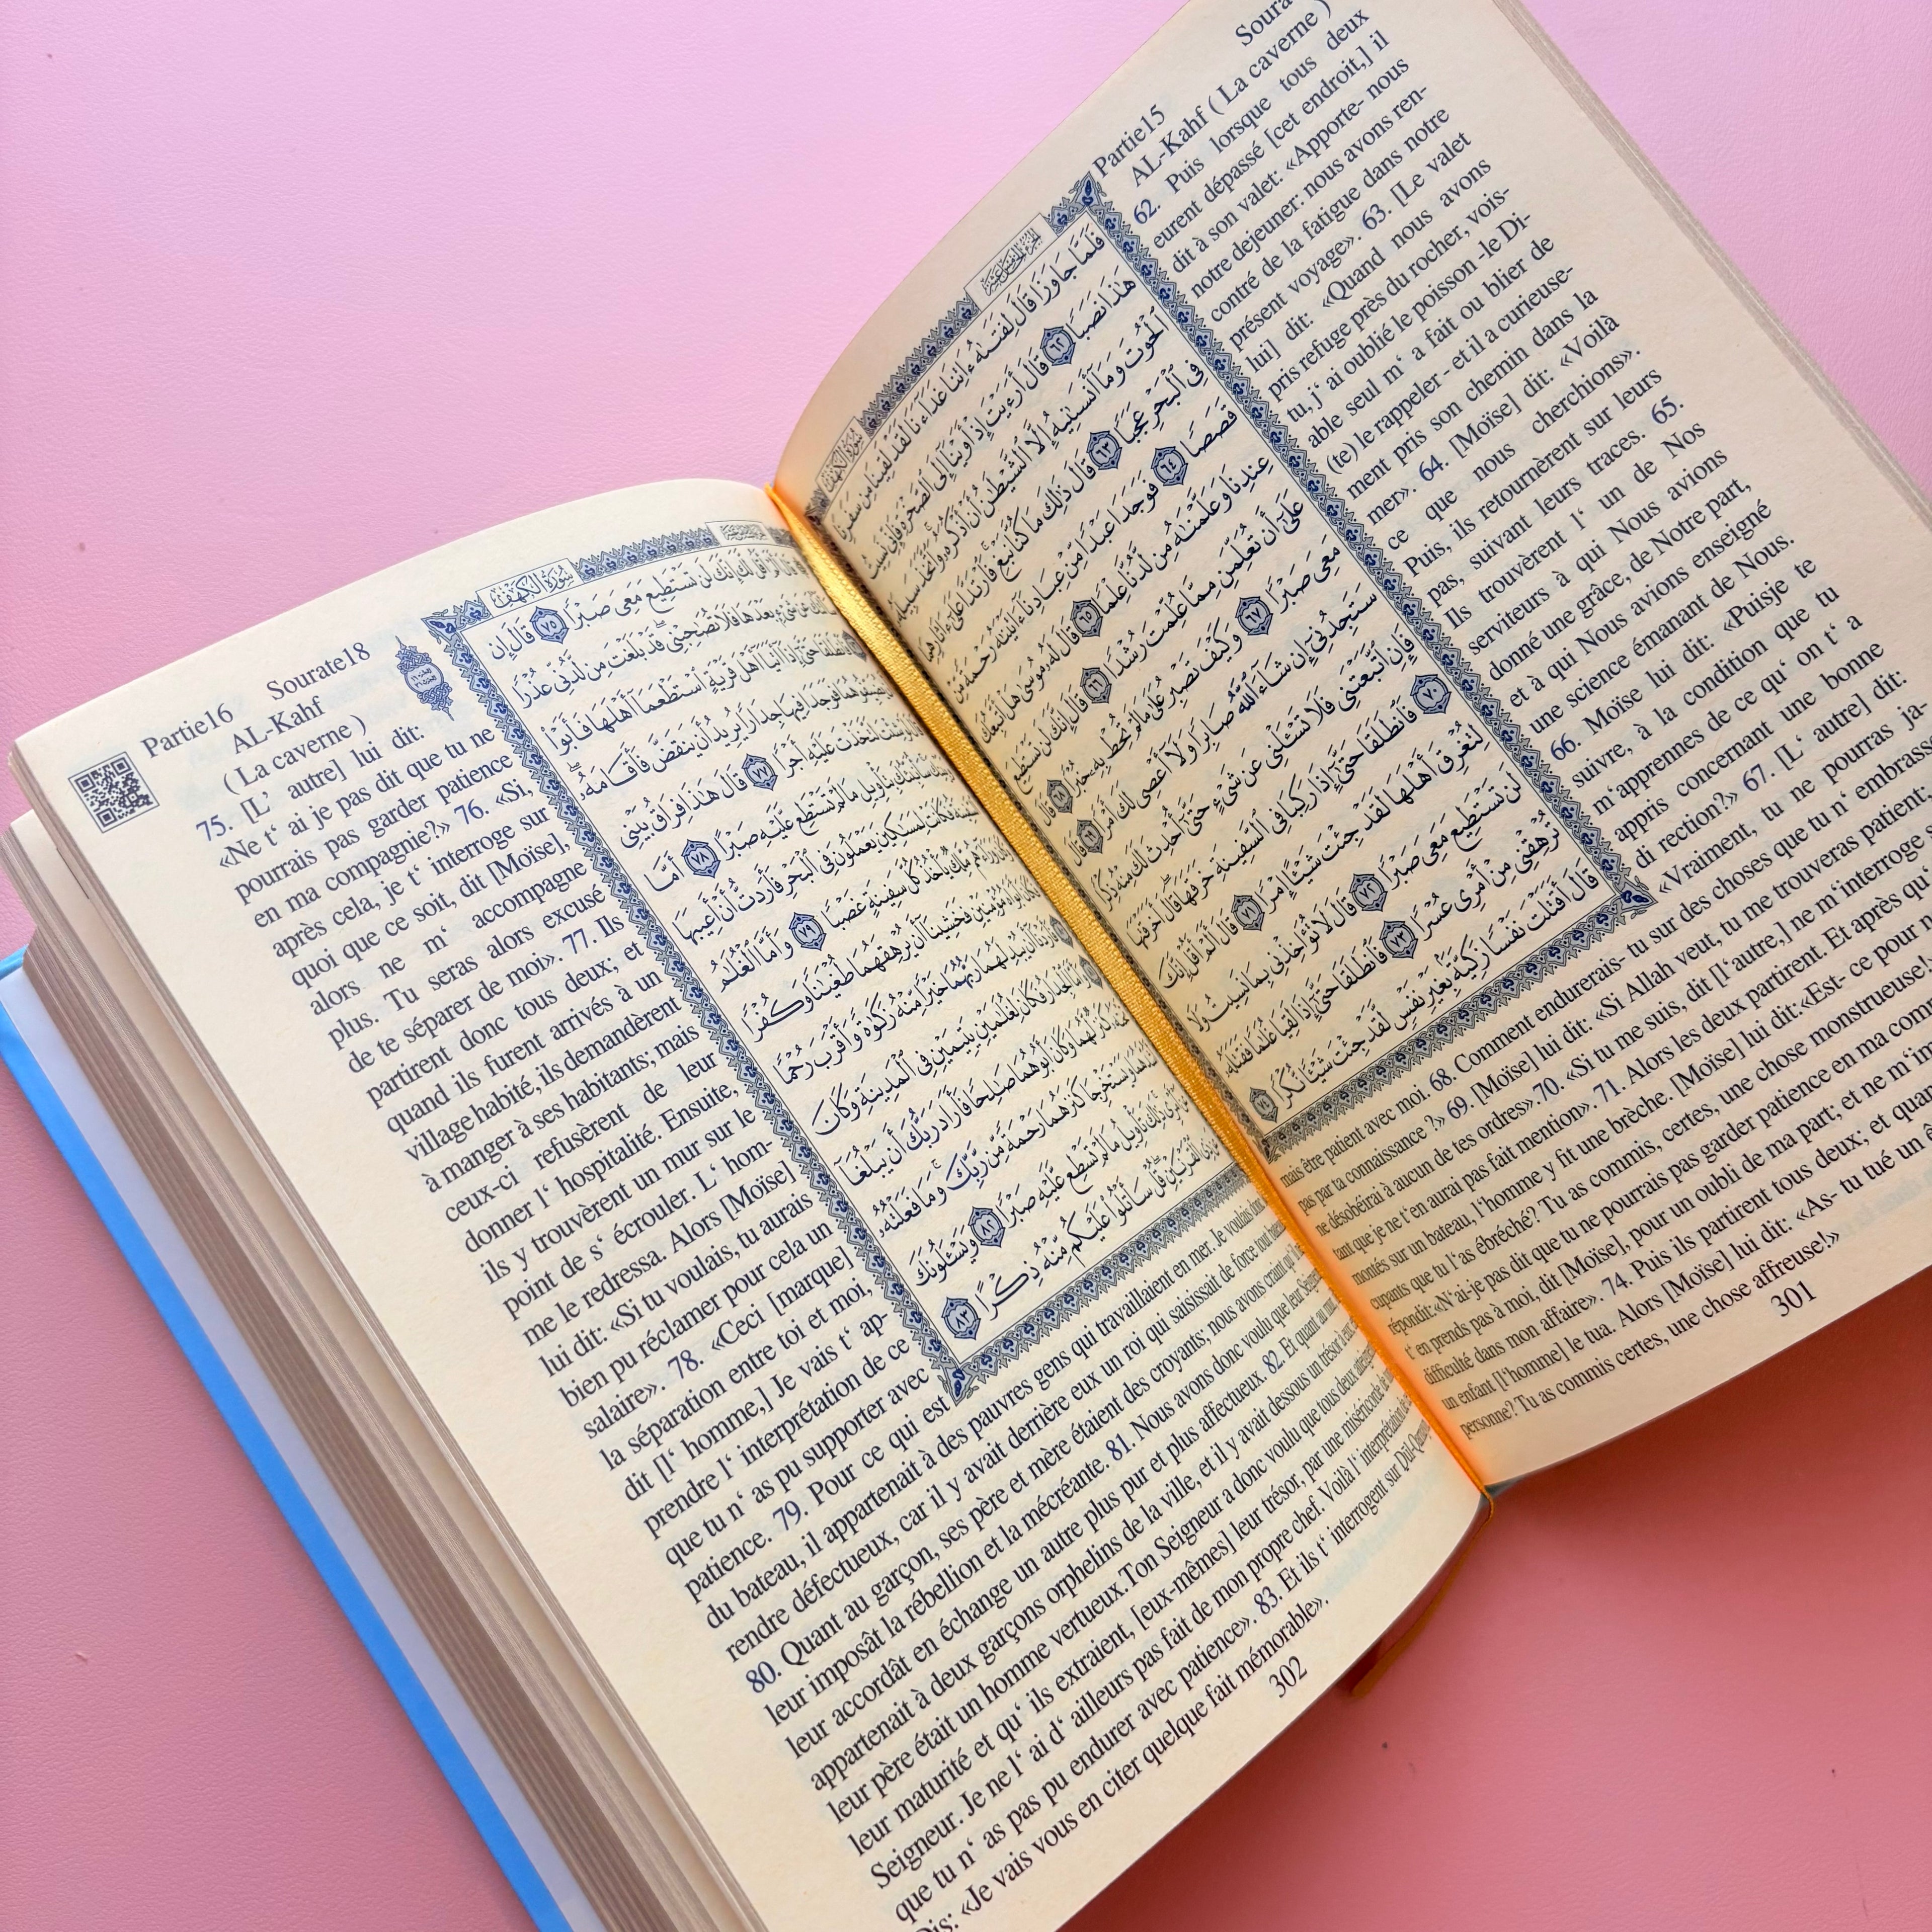 Partie15
Soura
AL-Kahf ( La caverne )
الجزء الخامس عشر
سورة الكهف
فَلَمَّا جَاوَزَا قَالَ لِفَتَىٰهُ ءَاتِنَا غَدَآءَنَا لَقَدْ لَقِينَا مِن سَفَرِنَا
هَٰذَا نَصَبًا ٦٢ قَالَ أَرَءَيْتَ إِذْ أَوَيْنَآ إِلَى ٱلصَّخْرَةِ فَإِنِّى نَسِيتُ
ٱلْحُوتَ وَمَآ أَنسَىٰنِيهُ إِلَّا ٱلشَّيْطَٰنُ أَنْ أَذْكُرَهُۥ وَٱتَّخَذَ سَبِيلَهُۥ
فِى ٱلْبَحْرِ عَجَبًا ٦٣ قَالَ ذَٰلِكَ مَا كُنَّا نَبْغِ فَٱرْتَدَّا عَلَىٰٓ ءَاثَارِهِمَا
قَصَصًا ٦٤ فَوَجَدَا عَبْدًا مِّنْ عِبَادِنَآ ءَاتَيْنَٰهُ رَحْمَةً مِّنْ
عِندِنَا وَعَلَّمْنَٰهُ مِن لَّدُنَّا عِلْمًا ٦٥ قَالَ لَهُۥ مُوسَىٰ هَلْ أَتَّبِعُكَ
عَلَىٰٓ أَن تُعَلِّمَنِ مِمَّا عُلِّمْتَ رُشْدًا ٦٦ قَالَ إِنَّكَ لَن تَسْتَطِيعَ
مَعِىَ صَبْرًا ٦٧ وَكَيْفَ تَصْبِرُ عَلَىٰ مَا لَمْ تُحِطْ بِهِۦ خُبْرًا ٦٨ قَالَ
سَتَجِدُنِىٓ إِن شَآءَ ٱللَّهُ صَابِرًا وَلَآ أَعْصِى لَكَ أَمْرًا ٦٩ قَالَ
فَإِنِ ٱتَّبَعْتَنِى فَلَا تَسْـَٔلْنِى عَن شَىْءٍ حَتَّىٰٓ أُحْدِثَ لَكَ مِنْهُ ذِكْرًا
٧٠ فَٱنطَلَقَا حَتَّىٰٓ إِذَا رَكِبَا فِى ٱلسَّفِينَةِ خَرَقَهَا قَالَ أَخَرَقْتَهَا
لِتُغْرِقَ أَهْلَهَا لَقَدْ جِئْتَ شَيْـًٔا إِمْرًا ٧١ قَالَ أَلَمْ أَقُلْ إِنَّكَ
لَن تَسْتَطِيعَ مَعِىَ صَبْرًا ٧٢ قَالَ لَا تُؤَاخِذْنِى بِمَا نَسِيتُ وَلَا
تُرْهِقْنِى مِنْ أَمْرِى عُسْرًا ٧٣ فَٱنطَلَقَا حَتَّىٰٓ إِذَا لَقِيَا غُلَٰمًا فَقَتَلَهُۥ
قَالَ أَقَتَلْتَ نَفْسًا زَكِيَّةًۢ بِغَيْرِ نَفْسٍ لَّقَدْ جِئْتَ شَيْـًٔا نُّكْرًا ٧٤
62. Puis lorsque tous deux
eurent dépassé [cet endroit,] il
dit à son valet: «Apporte- nous
notre dejeuner: nous avons ren-
contré de la fatigue dans notre
présent voyage». 63. [Le valet
lui] dit: «Quand nous avons
pris refuge près du rocher, vois-
tu, j‘ ai oublié le poisson -le Di-
able seul m‘ a fait ou blier de
(te) le rappeler - et il a curieuse-
ment pris son chemin dans la
mer». 64. [Moïse] dit: «Voilà
ce que nous cherchions».
Puis, ils retournèrent sur leurs
pas, suivant leurs traces. 65.
Ils trouvèrent l‘ un de Nos
serviteurs à qui Nous avions
donné une grâce, de Notre part,
et à qui Nous avions enseigné
une science émanant de Nous.
66. Moïse lui dit: «Puisje te
suivre, à la condition que tu
m‘apprennes de ce qu‘ on t‘ a
appris concernant une bonne
di rection?» 67. [L‘ autre] dit:
«Vraiment, tu ne pourras ja-
mais être patient avec moi. 68. Comment endurerais- tu sur des choses que tu n‘ embrasse
pas par ta connaissance ?» 69. [Moïse] lui dit: «Si Allah veut, tu me trouveras patient;
ne désobéirai à aucun de tes ordres». 70. «Si tu me suis, dit [l‘autre,] ne m‘interroge
tant que je ne t‘en aurai pas fait mention». 71. Alors les deux partirent. Et après qu‘
montés sur un bateau, l‘homme y fit une brèche. [Moïse] lui dit: «Est- ce pour
cupants que tu l‘as ébréché? Tu as commis, certes, une chose monstrueuse!»
répondit: «N‘ai-je pas dit que tu ne pourrais pas garder patience en ma com
t‘ en prends pas à moi, dit [Moïse], pour un oubli de ma part; et ne m‘im
difficulté dans mon affaire». 74. Puis ils partirent tous deux; et quan
un enfant [l‘homme] le tua. Alors [Moïse] lui dit: «As- tu tué un
personne? Tu as commis certes, une chose affreuse!»
301
Partie16
Sourate18
AL-Kahf
( La caverne )
سورة الكهف
قَالَ أَلَمْ أَقُل لَّكَ إِنَّكَ لَن تَسْتَطِيعَ مَعِىَ صَبْرًا ٧٥ قَالَ إِن
سَأَلْتُكَ عَن شَىْءٍۭ بَعْدَهَا فَلَا تُصَٰحِبْنِى قَدْ بَلَغْتَ مِن لَّدُنِّى عُذْرًا
٧٦ فَٱنطَلَقَا حَتَّىٰٓ إِذَآ أَتَيَآ أَهْلَ قَرْيَةٍ ٱسْتَطْعَمَآ أَهْلَهَا فَأَبَوْا۟
أَن يُضَيِّفُوهُمَا فَوَجَدَا فِيهَا جِدَارًا يُرِيدُ أَن يَنقَضَّ فَأَقَامَهُۥ
قَالَ لَوْ شِئْتَ لَتَّخَذْتَ عَلَيْهِ أَجْرًا ٧٧ قَالَ هَٰذَا فِرَاقُ بَيْنِى
وَبَيْنِكَ سَأُنَبِّئُكَ بِتَأْوِيلِ مَا لَمْ تَسْتَطِع عَّلَيْهِ صَبْرًا ٧٨ أَمَّا
ٱلسَّفِينَةُ فَكَانَتْ لِمَسَٰكِينَ يَعْمَلُونَ فِى ٱلْبَحْرِ فَأَرَدتُّ أَنْ أَعِيبَهَا
وَكَانَ وَرَآءَهُم مَّلِكٌ يَأْخُذُ كُلَّ سَفِينَةٍ غَصْبًا ٧٩ وَأَمَّا ٱلْغُلَٰمُ
فَكَانَ أَبَوَاهُ مُؤْمِنَيْنِ فَخَشِينَآ أَن يُرْهِقَهُمَا طُغْيَٰنًا وَكُفْرًا
٨٠ فَأَرَدْنَآ أَن يُبْدِلَهُمَا رَبُّهُمَا خَيْرًا مِّنْهُ زَكَوٰةً وَأَقْرَبَ رُحْمًا
٨١ وَأَمَّا ٱلْجِدَارُ فَكَانَ لِغُلَٰمَيْنِ يَتِيمَيْنِ فِى ٱلْمَدِينَةِ وَكَانَ
تَحْتَهُۥ كَنزٌ لَّهُمَا وَكَانَ أَبُوهُمَا صَٰلِحًا فَأَرَادَ رَبُّكَ أَن يَبْلُغَآ
أَشُدَّهُمَا وَيَسْتَخْرِجَا كَنزَهُمَا رَحْمَةً مِّن رَّبِّكَ وَمَا فَعَلْتُهُۥ
عَنْ أَمْرِى ذَٰلِكَ تَأْوِيلُ مَا لَمْ تَسْطِع عَّلَيْهِ صَبْرًا ٨٢ وَيَسْـَٔلُونَكَ
عَن ذِى ٱلْقَرْنَيْنِ قُلْ سَأَتْلُوا۟ عَلَيْكُم مِّنْهُ ذِكْرًا ٨٣
75. [L‘ autre] lui dit:
«Ne t‘ ai je pas dit que tu ne
pourrais pas garder patience
en ma compagnie?» 76. «Si,
après cela, je t‘ interroge sur
quoi que ce soit, dit [Moïse],
alors ne m‘ accompagne
plus. Tu seras alors excusé
de te séparer de moi». 77. Ils
partirent donc tous deux; et
quand ils furent arrivés à un
village habité, ils demandèrent
à manger à ses habitants; mais
ceux-ci refusèrent de leur
donner l‘ hospitalité. Ensuite,
ils y trouvèrent un mur sur le
point de s‘ écrouler. L‘ hom-
me le redressa. Alors [Moïse]
lui dit: «Si tu voulais, tu aurais
bien pu réclamer pour cela un
salaire». 78. «Ceci [marque]
la séparation entre toi et moi,
dit [l‘ homme,] Je vais t‘ ap-
prendre l‘ interprétation de ce
que tu n‘ as pu supporter avec
patience. 79. Pour ce qui est
du bateau, il appartenait à des pauvres gens qui travaillaient en mer. Je voulais donc
rendre défectueux, car il y avait derrière eux un roi qui saisissait de force tout
80. Quant au garçon, ses père et mère étaient des croyants; nous avons craint qu‘il
leur imposât la rébellion et la mécréante. 81. Nous avons donc voulu que leur Seigneur
leur accordât en échange un autre plus pur et plus affectueux. 82. Et quant au mur,
appartenait à deux garçons orphelins de la ville, et il y avait dessous un trésor à eux
leur père était un homme vertueux. Ton Seigneur a donc voulu que tous deux
leur maturité et qu‘ ils extraient, [eux-mêmes] leur trésor, par une miséricorde
Seigneur. Je ne l‘ ai d‘ ailleurs pas fait de mon propre chef. Voilà l‘ interprétation
que tu n‘ as pas pu endurer avec patience». 83. Et ils t‘ interrogent sur
Dis: «Je vais vous en citer quelque fait mémorable».
302